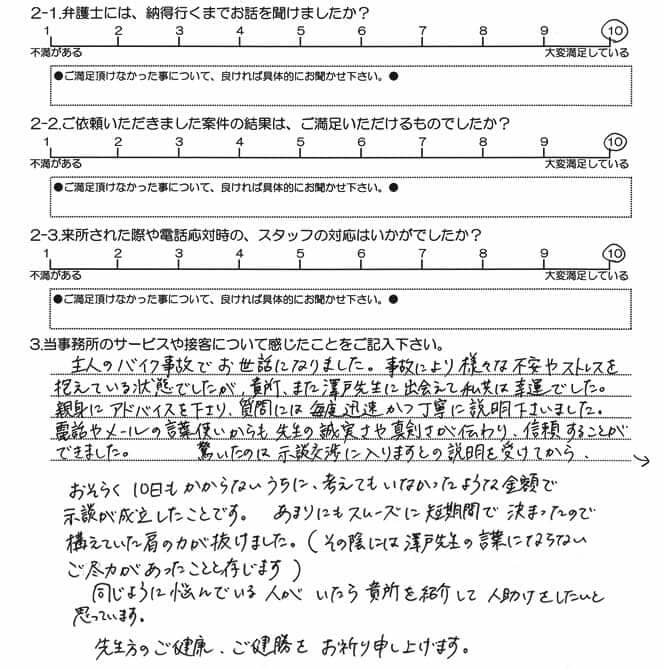 2-1.弁護士には、納得行くまでお話を聞けましたか?
1 2 3 4 5 6 7 8 9 10
不満がある 大変満足している
●ご満足頂けなかった事について、良ければ具体的にお聞かせ下さい。●
2-2.ご依頼いただきました案件の結果は、ご満足いただけるものでしたか?
1 2 3 4 5 6 7 8 9 10
不満がある 大変満足している
●ご満足頂けなかった事について、良ければ具体的にお聞かせ下さい。●
2-3.来所された際や電話応対時の、スタッフの対応はいかがでしたか?
1 2 3 4 5 6 7 8 9 10
不満がある 大変満足している
●ご満足頂けなかった事について、良ければ具体的にお聞かせ下さい。●
3.当事務所のサービスや接客について感じたことをご記入下さい。
主人のバイク事故でお世話になりました。事故により様々な不安やストレスを
抱えている状態でしたが、貴所、また澤戸先生に出会えて私共は幸運でした。
親身にアドバイスを下さり、質問には毎度迅速かつ丁寧に説明下さいました。
電話やメールの言葉使いからも先生の誠実さや真剣さが伝わり、信頼することが
できました。 驚いたのは示談交渉に入りますとの説明を受けてから、
おそらく10日もかからないうちに、考えてもいなかったような金額で
示談が成立したことです。 あまりにもスムーズに短期間で決まったので
構えていた肩の力が抜けました。(その陰には澤戸先生の言葉にならない
ご尽力があったことと存じます)
同じように悩んでいる人がいたら貴所を紹介して人助けをしたいと
思っています。
先生方のご健康、ご健勝をお祈り申し上げます。